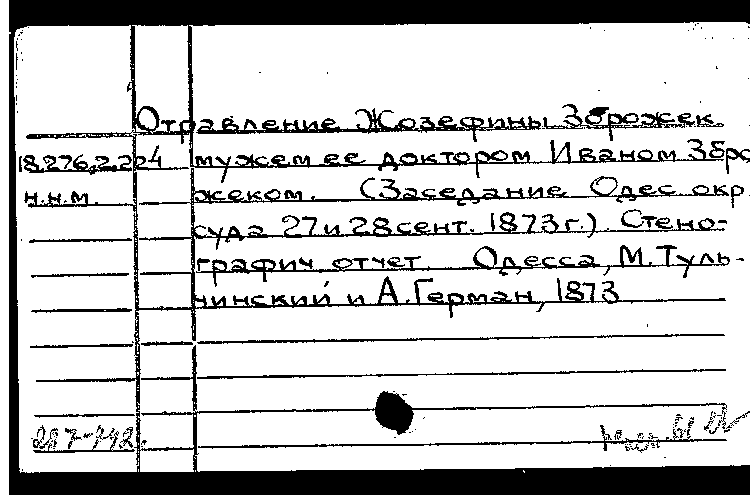 Отравление Жозефины Зброжек
18.276.2.224 мужем ее доктором Иваном Збро
н.н.м. жеком. (Заседание Одес. окр.
суда 27 и 28 сент. 1873 г.) Стено-
графич. отчет. Одесса, М. Туль-
чинский и А. Герман, 1873